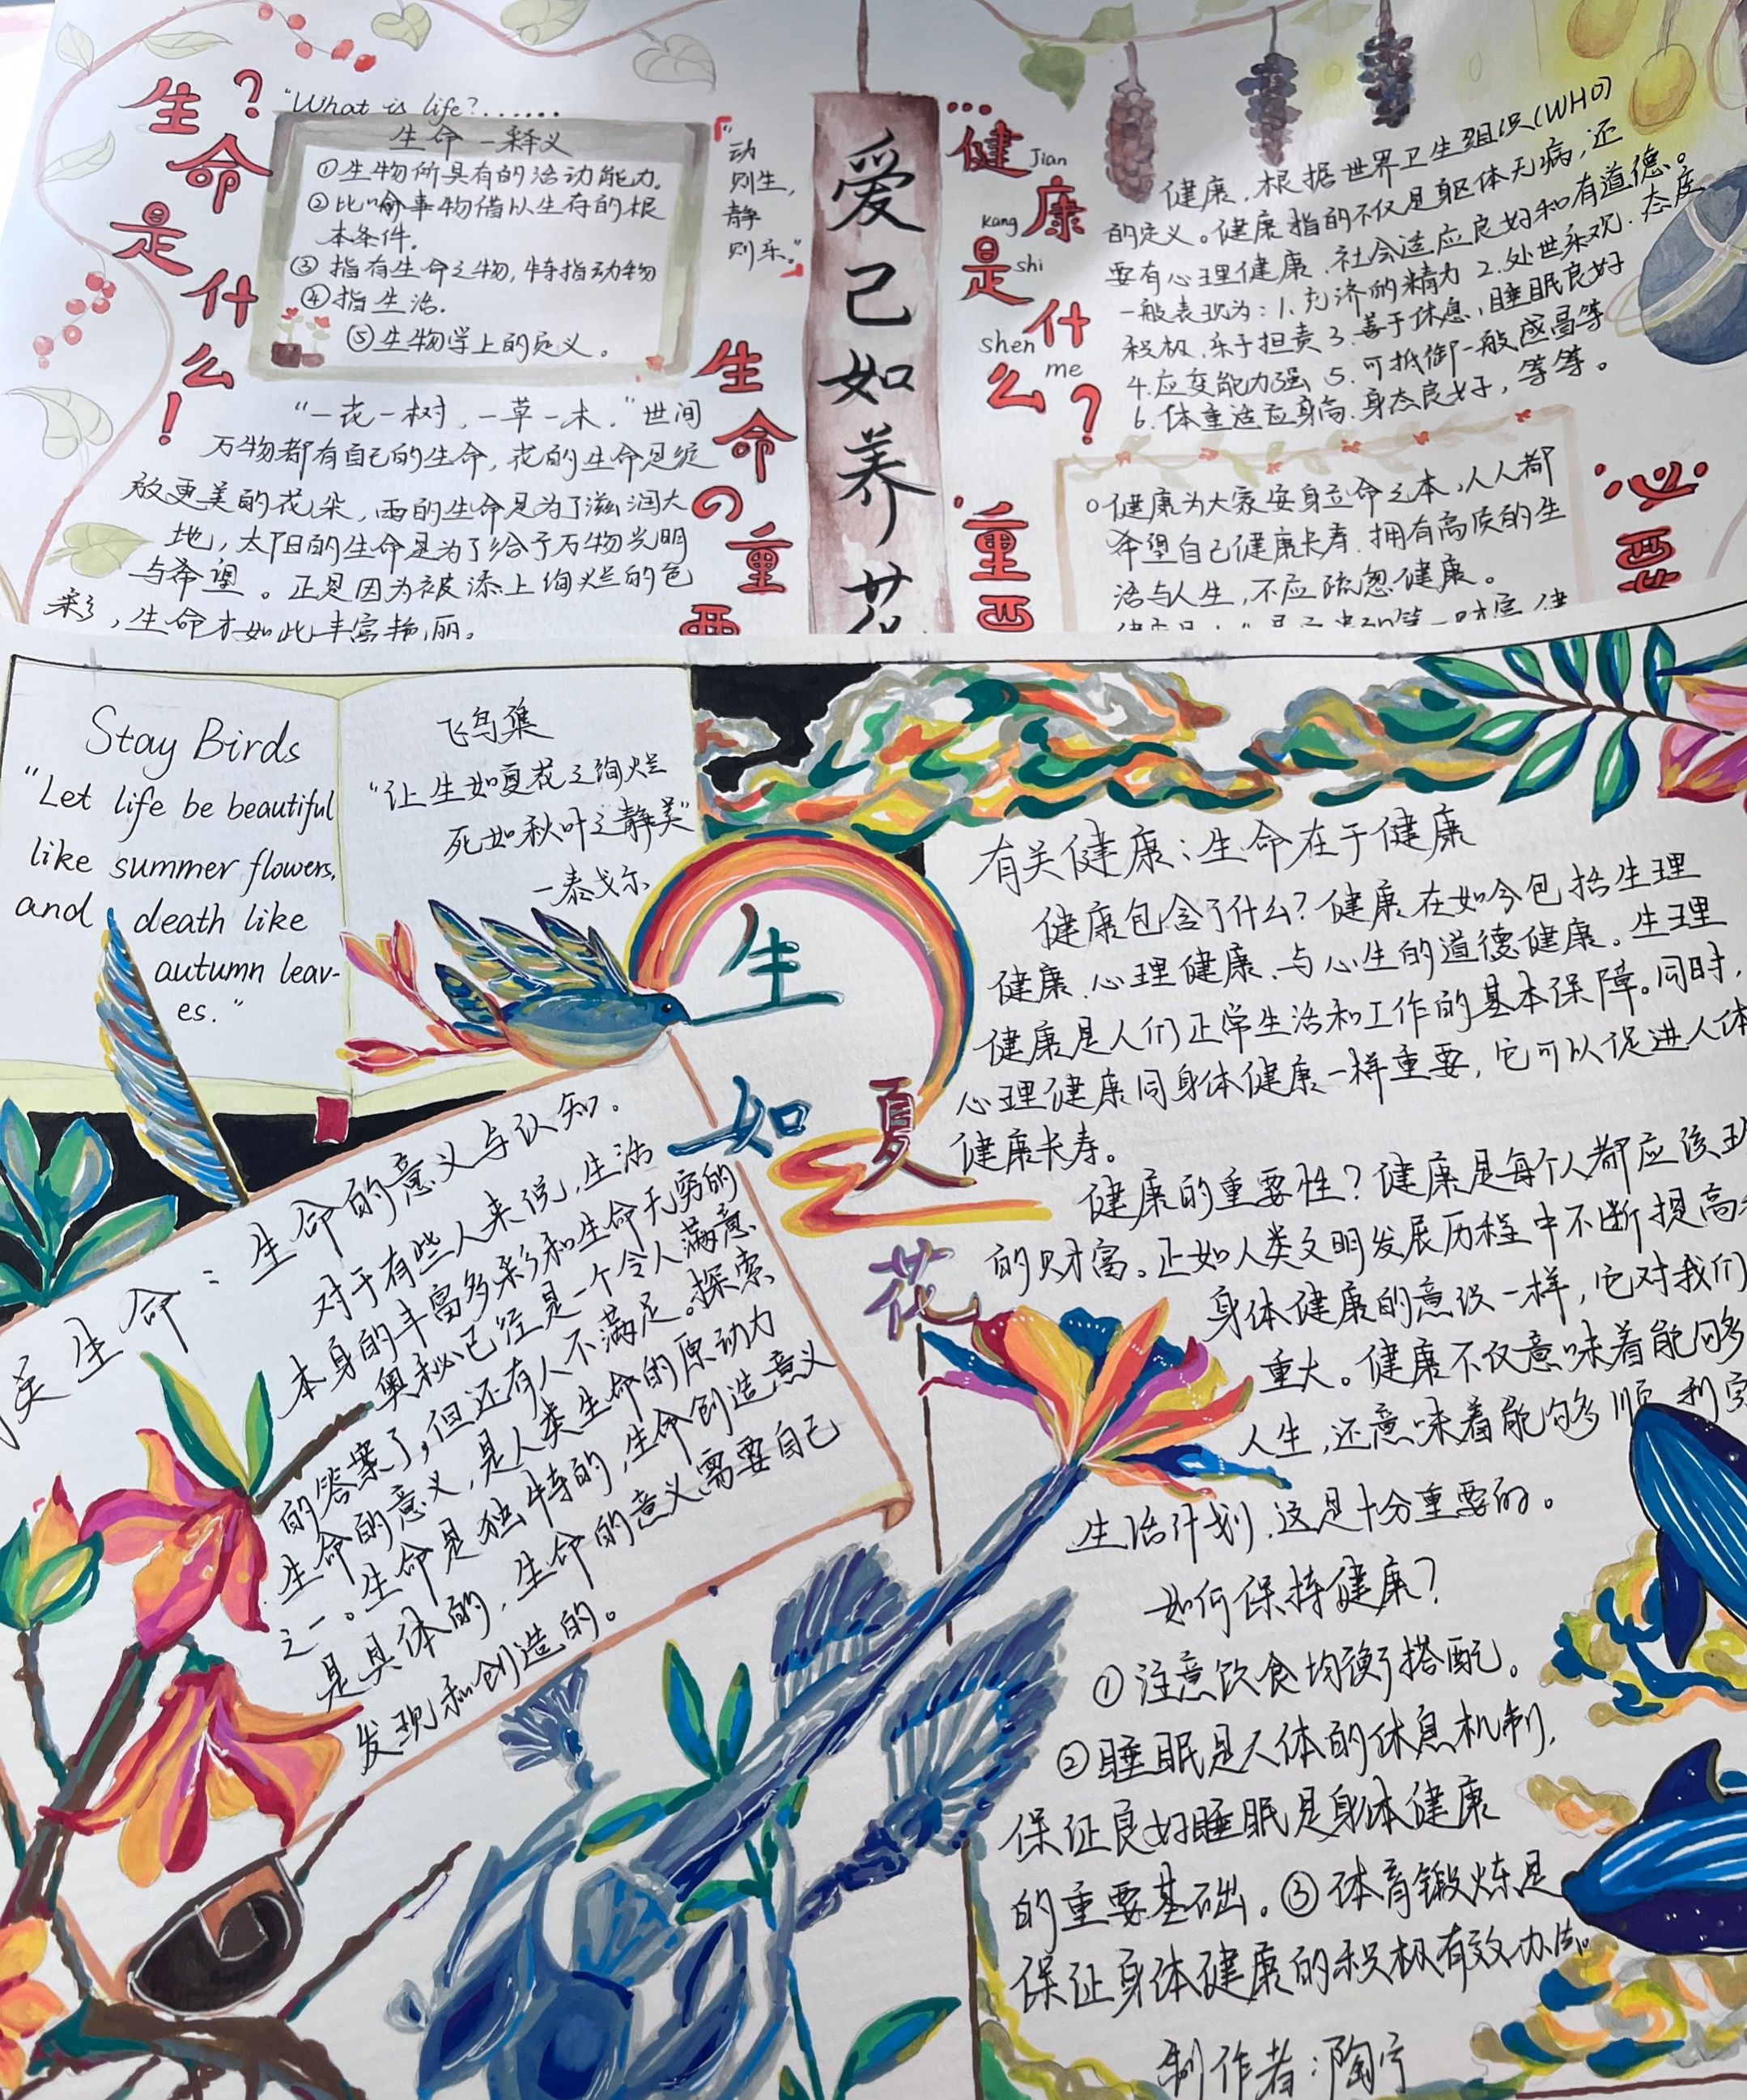 生命是什么！？
"What is life?.......
生命—释义
①生物所具有的活动能力。
②比喻事物借以生存的根
本条件.
③指有生命之物,特指动物
④指生活.
⑤生物学上的定义。
"动
则生,
静
则乐。"
"一花一树,一草一木."世间
万物都有自己的生命,花的生命是绽
放更美的花朵,雨的生命是为了滋润大
地,太阳的生命是为了给予万物光明
与希望。正是因为被添上绚烂的色
彩,生命才如此丰富艳丽。
生命の重要
爱己如养花
...健康是什么?
Jian
Kang
shi
shen
me
健康,根据世界卫生组织(WHO)
的定义。健康指的不仅是躯体无病,还
要有心理健康、社会适应良好和有道德。
一般表现为:1.充沛的精力 2.处世乐观.态度
积极.乐于担责 3.善于休息,睡眠良好
4.应变能力强 5.可抵御一般感冒等
6.体重适应身高.身态良好,等等。
重要
必要
健康为大家安身立命之本,人人都
希望自己健康长寿.拥有高质的生
活与人生,不应疏忽健康。
Stay Birds
"Let life be beautiful
like summer flowers,
and death like
autumn leav-
es."
飞鸟集
"让生如夏花之绚烂
死如秋叶之静美"
—泰戈尔
生如夏花
生命:生命的意义与认知.
对于有些人来说,生活
本身的丰富多彩和生命无穷的
奥秘已经是一个令人满意
的答案了,但还有人不满足。探索
生命的意义,是人类生命的原动力
之一。生命是独特的,生命创造意义
是具体的,生命的意义需要自己
发现和创造的。
有关健康:生命在于健康
健康包含了什么?健康在如今包括生理
健康、心理健康、与心生的道德健康。生理
健康是人们正常生活和工作的基本保障。同时,
心理健康同身体健康一样重要,它可以促进人体
健康长寿。
健康的重要性?健康是每个人都应该
的财富。正如人类文明发展历程中不断提高
身体健康的意识一样,它对我们
重大。健康不仅意味着能够
人生,还意味着能够顺利
生活计划.这是十分重要的。
如何保持健康?
①注意饮食均衡搭配。
②睡眠是人体的休息机制,
保证良好睡眠是身体健康
的重要基础。③体育锻炼是
保证身体健康的积极有效办法。
制作者:陶宁